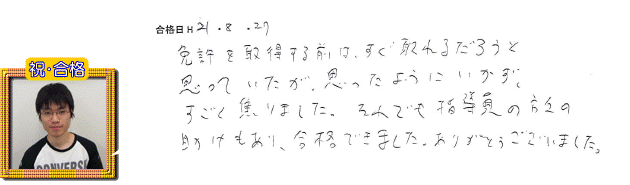 合格日 H 21・8・27
免許を取得する前は、すぐ取れるだろうと
思っていたが、思ったようにいかず、
すごく焦りました。それでも指導員の方々の
助けもあり、合格できました。ありがとうございました。
祝・合格
CONVERS